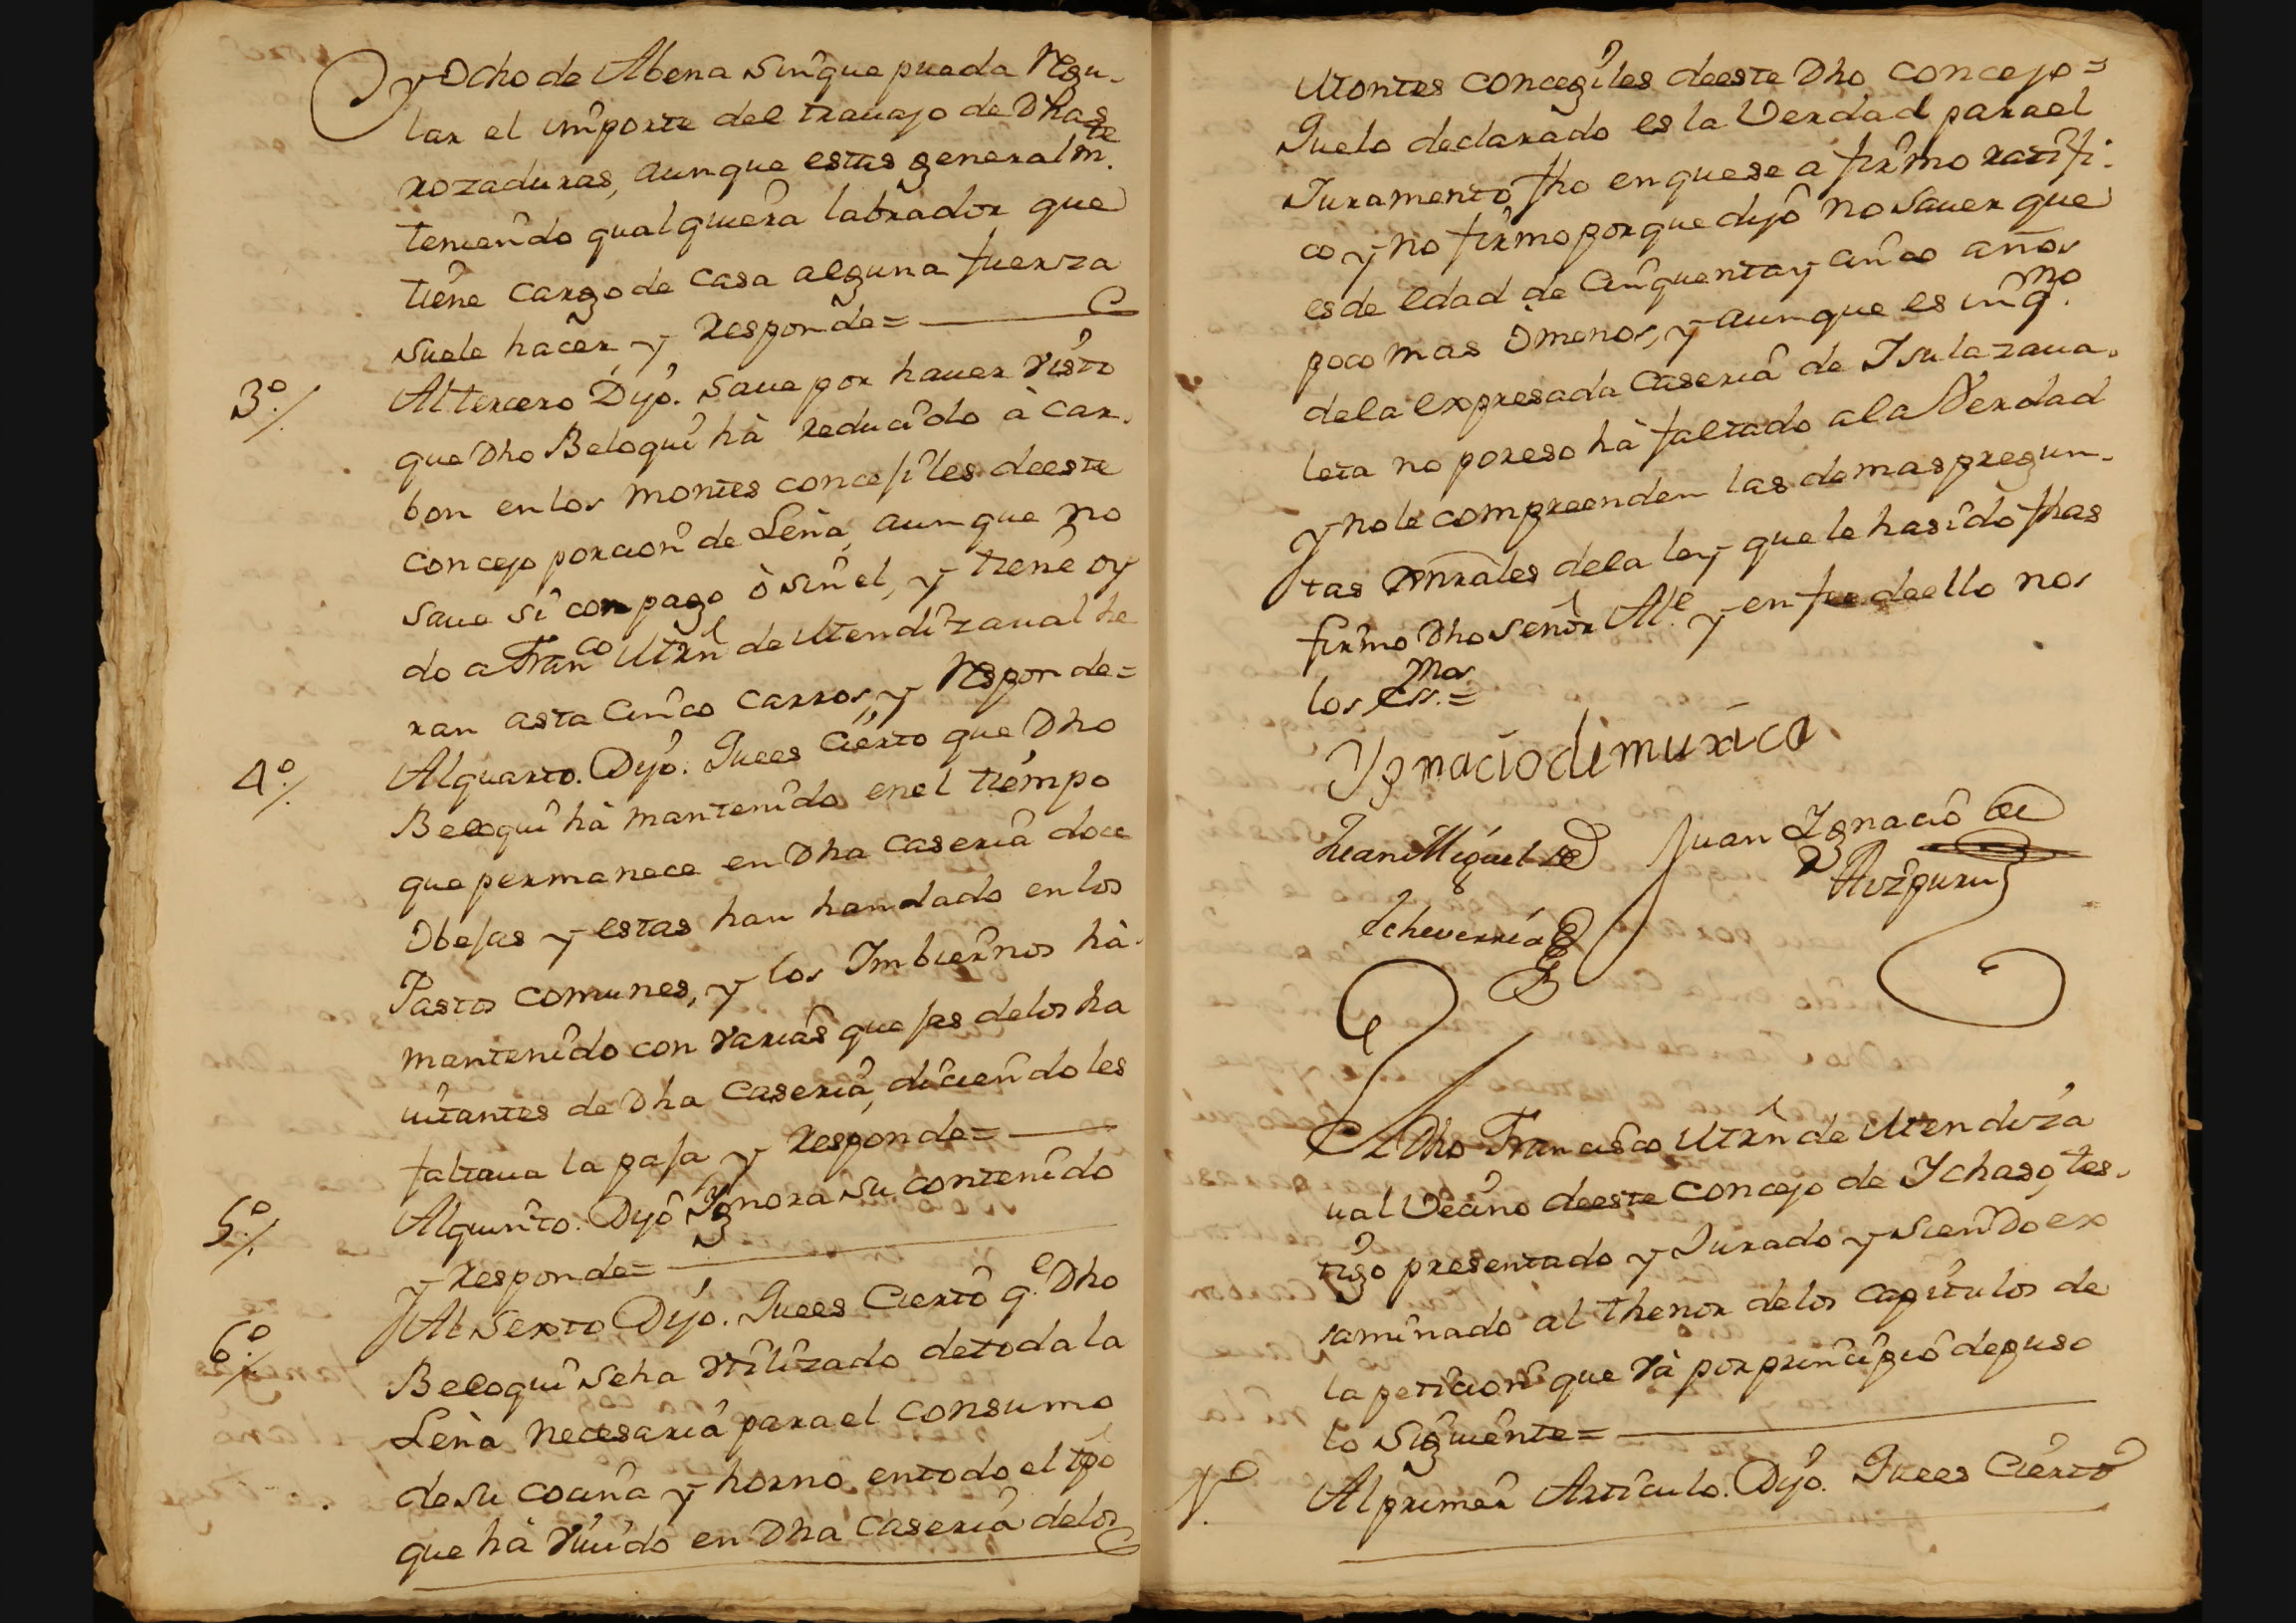 y Ocho de Abena sin que pueda Regu-
lar el importe del trauajo de Dhas
rozaduras, aunque estas generalm.te
teniendo qualquiera labrador que
tiene cargo de casa alguna fuerza
suele hacer y Responde=
3º/. Al tercero Dijo. Saue por hauer visto
que Dho Beloqui hà reducido à car-
bon en los montes concejiles deeste
concejo porcion de Leña, aunque no
saue si con pago ò sin el, y tiene oy
do a Fran.co Mrn de Mendizaual he
ran asta cinco carros, y Responde=
4º/. Al quarto. Dijo. Quees Cierto que Dho
Beloqui hà mantenido enel tiempo
que permanece en Dha caseria doce
Obejas y estas han handado en los
Pastos comunes, y los Imbiernos hà
mantenido con varias quejas delos ha
uitantes de Dha caseria, diciendoles
faltaua la paja y Responde=
5º/. Al quinto. Dijo Ygnora su contenido
y Responde=
6º/. Al Sexto Dijo. Quees Cierto q.e Dho
Beloqui seha vtilizado detoda la
Leña necesaria para el consumo
de su cocina y horno entodo el tpo
que hà viuido en Dha caseria delos
Montes concegiles deeste Dho concejo=
Quelo declarado es la Verdad para el
Juramento fho enquese a firmo ratifi-
co y no firmo porque dijo no sauer que
es de edad de cinquenta y cinco años
poco mas òmenos, y aunque es inq.no
dela expresada caseria de Isulazaua-
leta no poreso hà faltado ala Verdad
y nole compreenden las demas pregun-
tas Genrales dela ley que le hasido fhas
firmo Dho señor Al.e y en fee deello nos
los ess.nos=
Ygnacio de muxica
Juan Miguel de
Echeverria
Juan Ignacio de
Aizpuru
El Dho Francisco Mrn de Mendiza
ual Vecino deeste concejo de Ychaso, tes-
tigo presentado y Jurado y siendo ex
saminado al thenor delos capitulos de
la peticion que và por principio depuso
lo siguiente=
1º. Al primer Articulo. Dijo. Quees Cierto